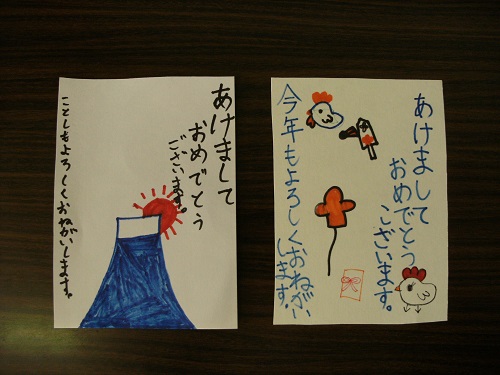 あけまして
おめでとう
ございます。
ことしもよろしくおねがいします。
あけまして
おめでとう
ございます。
今年もよろしくおねがい
します。